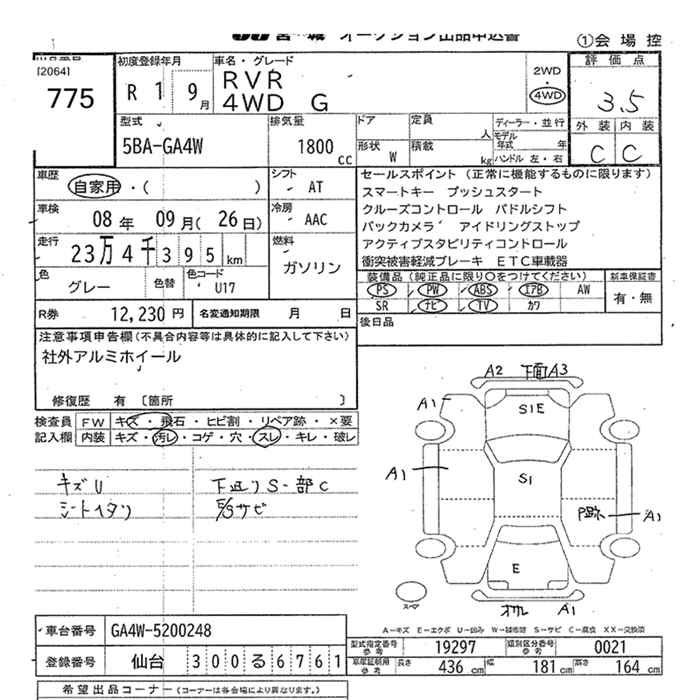 宮 城 オークション出品申込書
①会場控
[2064]
775
初度登録年月
R 1 9月
車名・グレード
RVR
4WD G
2WD
・
4WD
評価点
3.5
外装 内装
C C
型式
5BA-GA4W
排気量
1800 cc
ドア
定員
人
形状 W
積載
kg
ディーラー・並行
モデル年式 年
ハンドル 左・右
車歴
自家用・( )
シフト
AT
車検
08年 09月(26日)
冷房
AAC
走行
23万4千395km
燃料
ガソリン
色
グレー
色替
色コード
U17
R券 12,230円
名変通知期限 月 日
セールスポイント(正常に機能するものに限ります)
スマートキー プッシュスタート
クルーズコントロール パドルシフト
バックカメラ アイドリングストップ
アクティブスタビリティコントロール
衝突被害軽減ブレーキ ETC車載器
装備品(純正品に限り○をつけてください)
新車保証書
PS PW ABS エアB AW
有・無
SR ナビ TV カワ
後日品
注意事項申告欄(不具合内容等は具体的に記入して下さい)
社外アルミホイール
修復歴 有 〔箇所 〕
検査員 FW キズ・飛石・ヒビ割・リペア跡・×要
記入欄 内装 キズ・汚レ・コゲ・穴・スレ・キレ・破レ
キズU
シートイタリ
下廻りS一部C
サビ
A2 下面A3
A1
S1E
A1
S1
P跡
A1
E
A1
スペア
A-キズ E-エクボ U-凹み W-補修跡 S-サビ C-腐食 XX-交換済
車台番号 GA4W-5200248
登録番号 仙台 300る6761
型式指定番号 参考 19297
類別区分番号 参考 0021
車庫証明用 参考 長さ 436 cm 幅 181 cm 高さ 164 cm
希望出品コーナー(コーナーは各会場により異なります。)